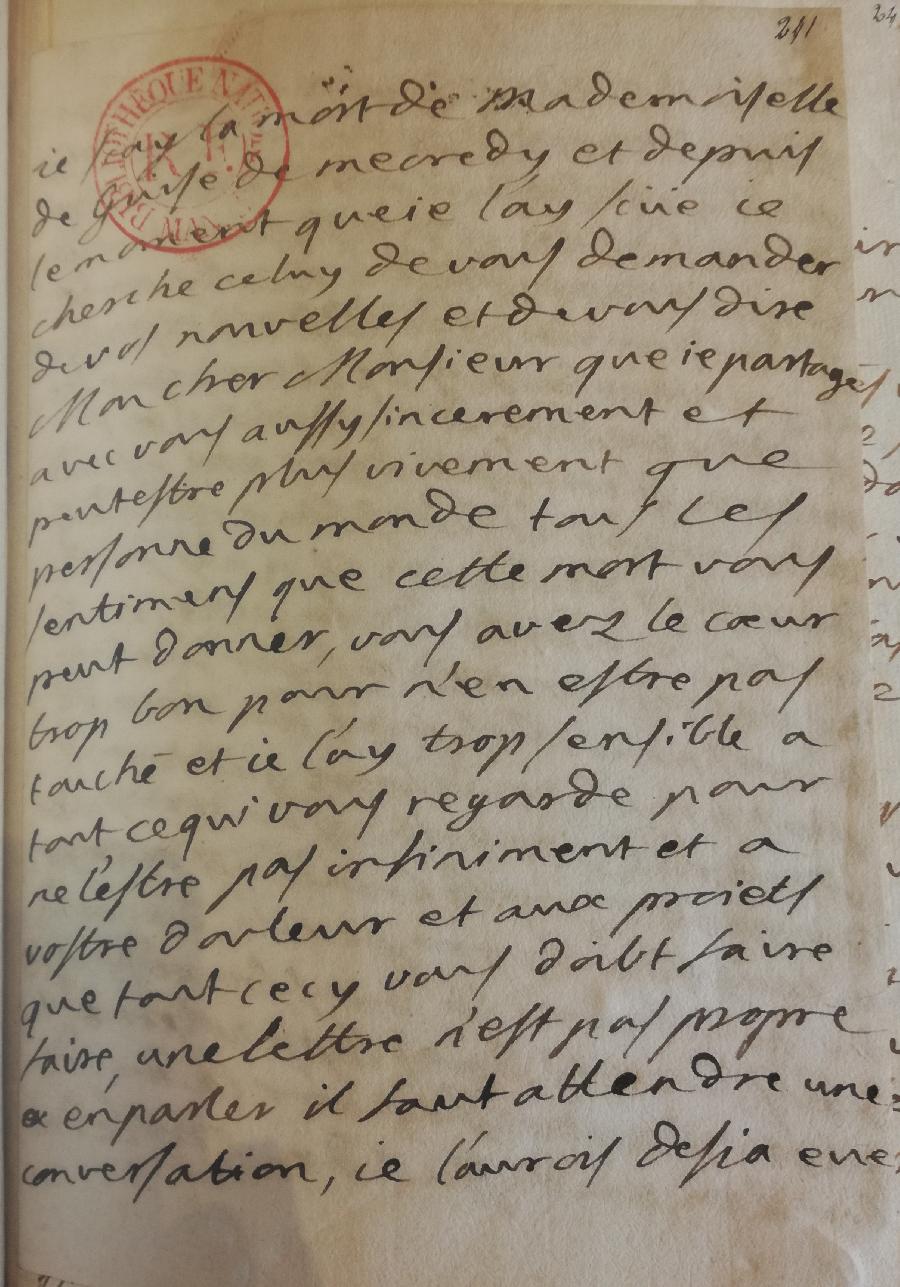 241
ie sçay la mort de Mademoiselle
de Guise de mecredy et depuis
le moment que ie l'ay sçüe ie
cherche celuy de vous demander
de vos nouvelles et de vous dire
Mon cher Monsieur que ie partages
avec vous aussy sincerement et
peutestre plus vivement que
personne du monde tous les
sentimens que cette mort vous
peut donner, vous avez le cœur
trop bon pour n'en estre pas
touché et ie l'ay trop sensible a
tout ce qui vous regarde pour
ne l'estre pas infiniment et a
vostre douleur et aux proiets
que tout cecy vous doibt faire
faire, une lettre n'est pas propre
a en parler il faut attendre une
conversation, ie l'aurois desia eue
BIBLIOTHÈQUE NAT
R F
MAN